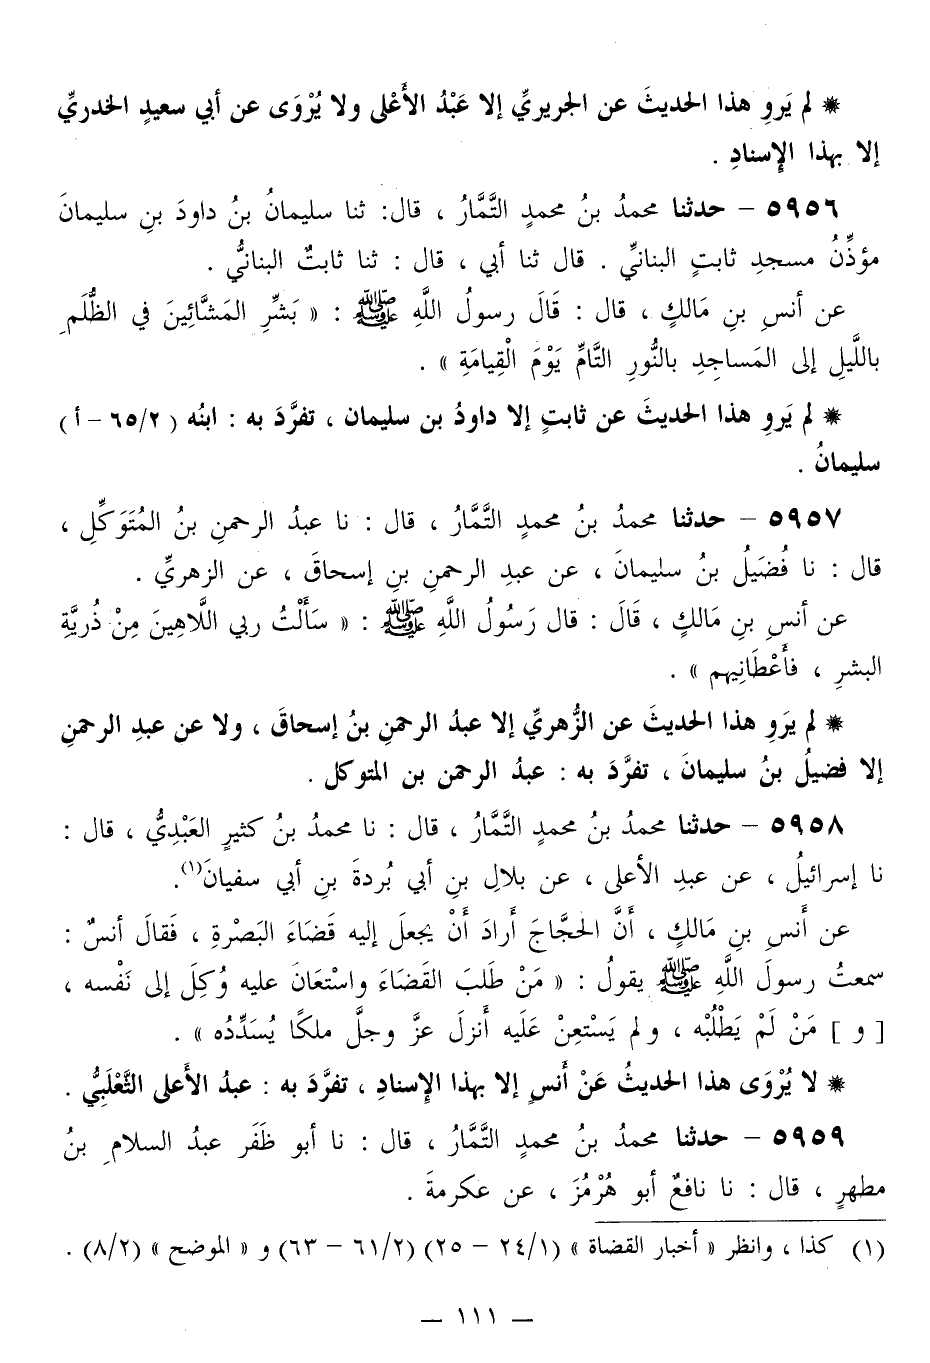 * لم يَروِ هذا الحديثَ عن الجريريِّ إلا عَبْدُ الأَعْلى ولا يُرْوَى عن أبي سعيدٍ الخدريِّ
إلا بهذا الإسنادِ .
٥٩٥٦ – حدثنا محمدُ بنُ محمدٍ التَّمَّارُ ، قال: ثنا سليمانُ بنُ داودَ بنِ سليمانَ
مؤذِّنُ مسجدِ ثابتٍ البنانيِّ . قال ثنا أبي ، قال : ثنا ثابتٌ البنانيُّ .
عن أنسِ بنِ مَالكٍ ، قال : قَالَ رسولُ اللَّهِ ﷺ : « بَشِّرِ المَشَّائِينَ في الظُّلَمِ
باللَّيلِ إلى المَساجِدِ بالنُّورِ التَّامِّ يَوْمَ الْقِيامَةِ » .
* لم يَروِ هذا الحديثَ عن ثابتٍ إلا داودُ بن سليمان ، تفرَّدَ به : ابنُه ( ٦٥/٢ – أ )
سليمانُ .
٥٩٥٧ – حدثنا محمدُ بنُ محمدٍ التَّمَّارُ ، قال : نا عبدُ الرحمنِ بنُ المُتَوَكِّلِ ،
قال : نا فُضَيلُ بنُ سليمانَ ، عن عبدِ الرحمنِ بنِ إسحاقَ ، عن الزهريِّ .
عن أنسِ بنِ مَالكٍ ، قَالَ : قال رَسُولُ اللَّهِ ﷺ : « سَأَلْتُ ربي اللَّاهِينَ مِنْ ذُريَّةِ
البشرِ ، فأَعْطَانِيهم » .
* لم يَروِ هذا الحديثَ عن الزُّهريِّ إلا عبدُ الرحمنِ بنُ إسحاقَ ، ولا عن عبدِ الرحمنِ
إلا فضيلُ بنُ سليمانَ ، تفرَّدَ به : عبدُ الرحمن بن المتوكل .
٥٩٥٨ – حدثنا محمدُ بنُ محمدٍ التَّمَّارُ ، قال : نا محمدُ بنُ كثيرٍ العَبْدِيُّ ، قال :
نا إسرائيلُ ، عن عبدِ الأعلى ، عن بلالِ بنِ أبي بُردةَ بنِ أبي سفيانَ(١).
عن أَنسِ بنِ مَالكٍ ، أَنَّ الحَجَّاجَ أَرادَ أَنْ يجعلَ إليه قَضَاءَ البَصْرةِ ، فَقالَ أنسٌ :
سمعتُ رسولَ اللَّهِ ﷺ يقولُ : « مَنْ طَلَبَ القَضَاءَ واسْتَعَانَ عليه وُكِلَ إلى نَفْسه ،
[ و ] مَنْ لَمْ يَطْلُبْه ، ولم يَسْتَعِنْ عَلَيه أَنزلَ عزَّ وجلَّ ملكًا يُسَدِّدُه » .
* لا يُرْوَى هذا الحديثُ عَنْ أَنسٍ إلا بهذا الإسنادِ ، تفرَّدَ به : عبدُ الأَعلى الثَّعْلَبيُّ .
٥٩٥٩ – حدثنا محمدُ بنُ محمدٍ التَّمَّارُ ، قال : نا أبو ظَفَر عبدُ السلامِ بنُ
مطهرٍ ، قال : نا نافعٌ أبو هُرْمُزَ ، عن عكرمةَ .
(١) كذا ، وانظر « أخبار القضاة » (٢٤/١ – ٢٥) (٦١/٢ – ٦٣) و « الموضح » (٨/٢) .
– ١١١ –